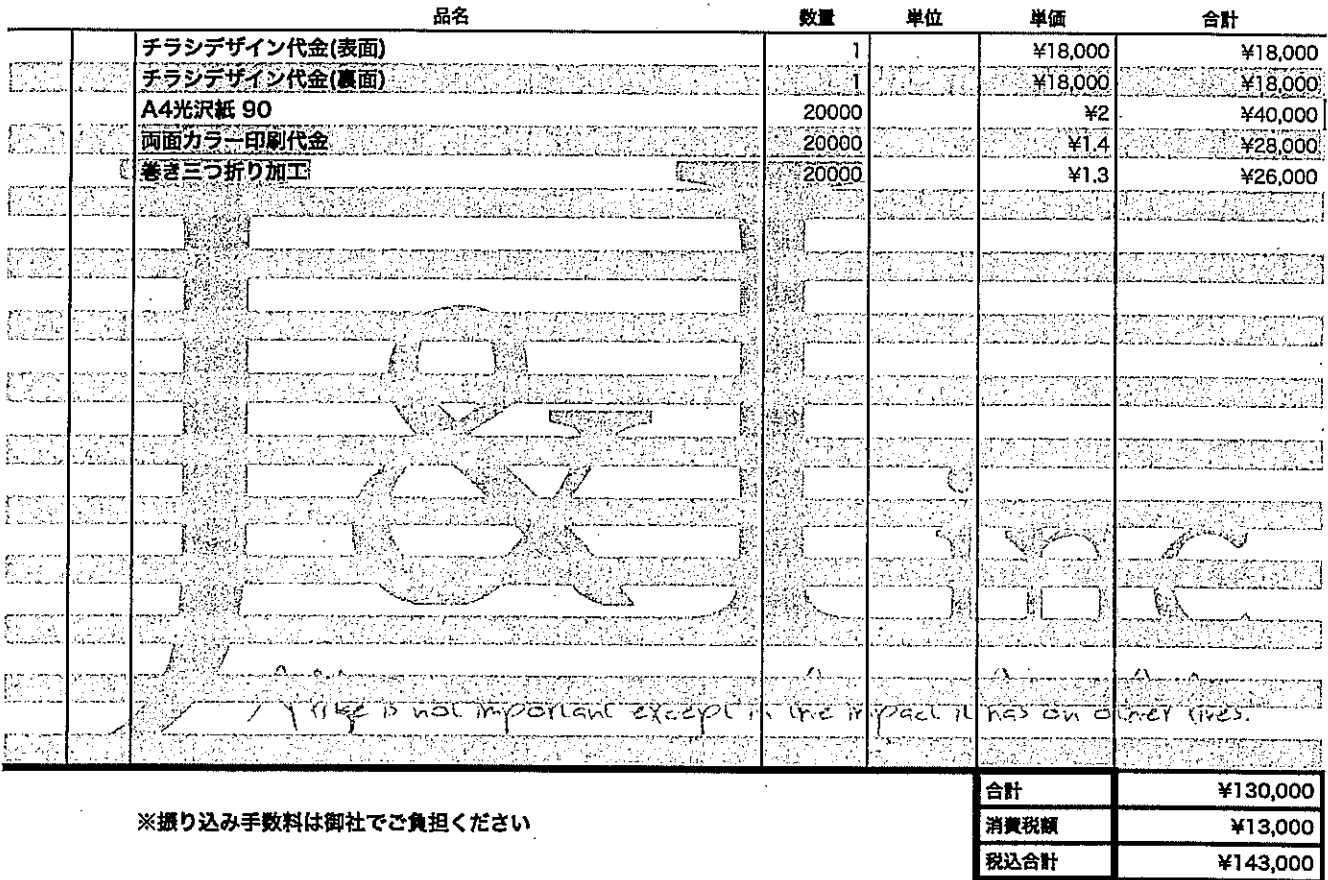 品名 数量 単位 単価 合計
チラシデザイン代金(表面) 1 ¥18,000 ¥18,000
チラシデザイン代金(裏面) 1 ¥18,000 ¥18,000
A4光沢紙 90 20000 ¥2 ¥40,000
両面カラー印刷代金 20000 ¥1.4 ¥28,000
巻き三つ折り加工 20000 ¥1.3 ¥26,000
is not important except in the impact it has on other lives.
合計 ¥130,000
※振り込み手数料は御社でご負担ください
消費税額 ¥13,000
税込合計 ¥143,000